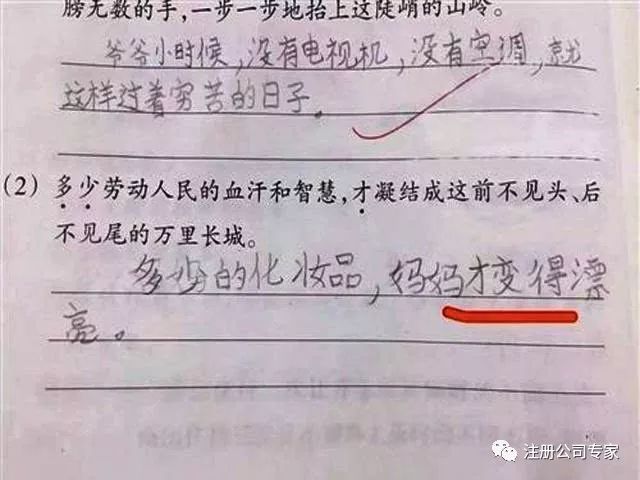 膀无数的手,一步一步地抬上这陡峭的山岭。
爷爷小时候,没有电视机,没有空调,就
这样过着穷苦的日子。
(2) 多少劳动人民的血汗和智慧,才凝结成这前不见头、后
不见尾的万里长城。
多少的化妆品,妈妈才变得漂
亮。
注册公司专家